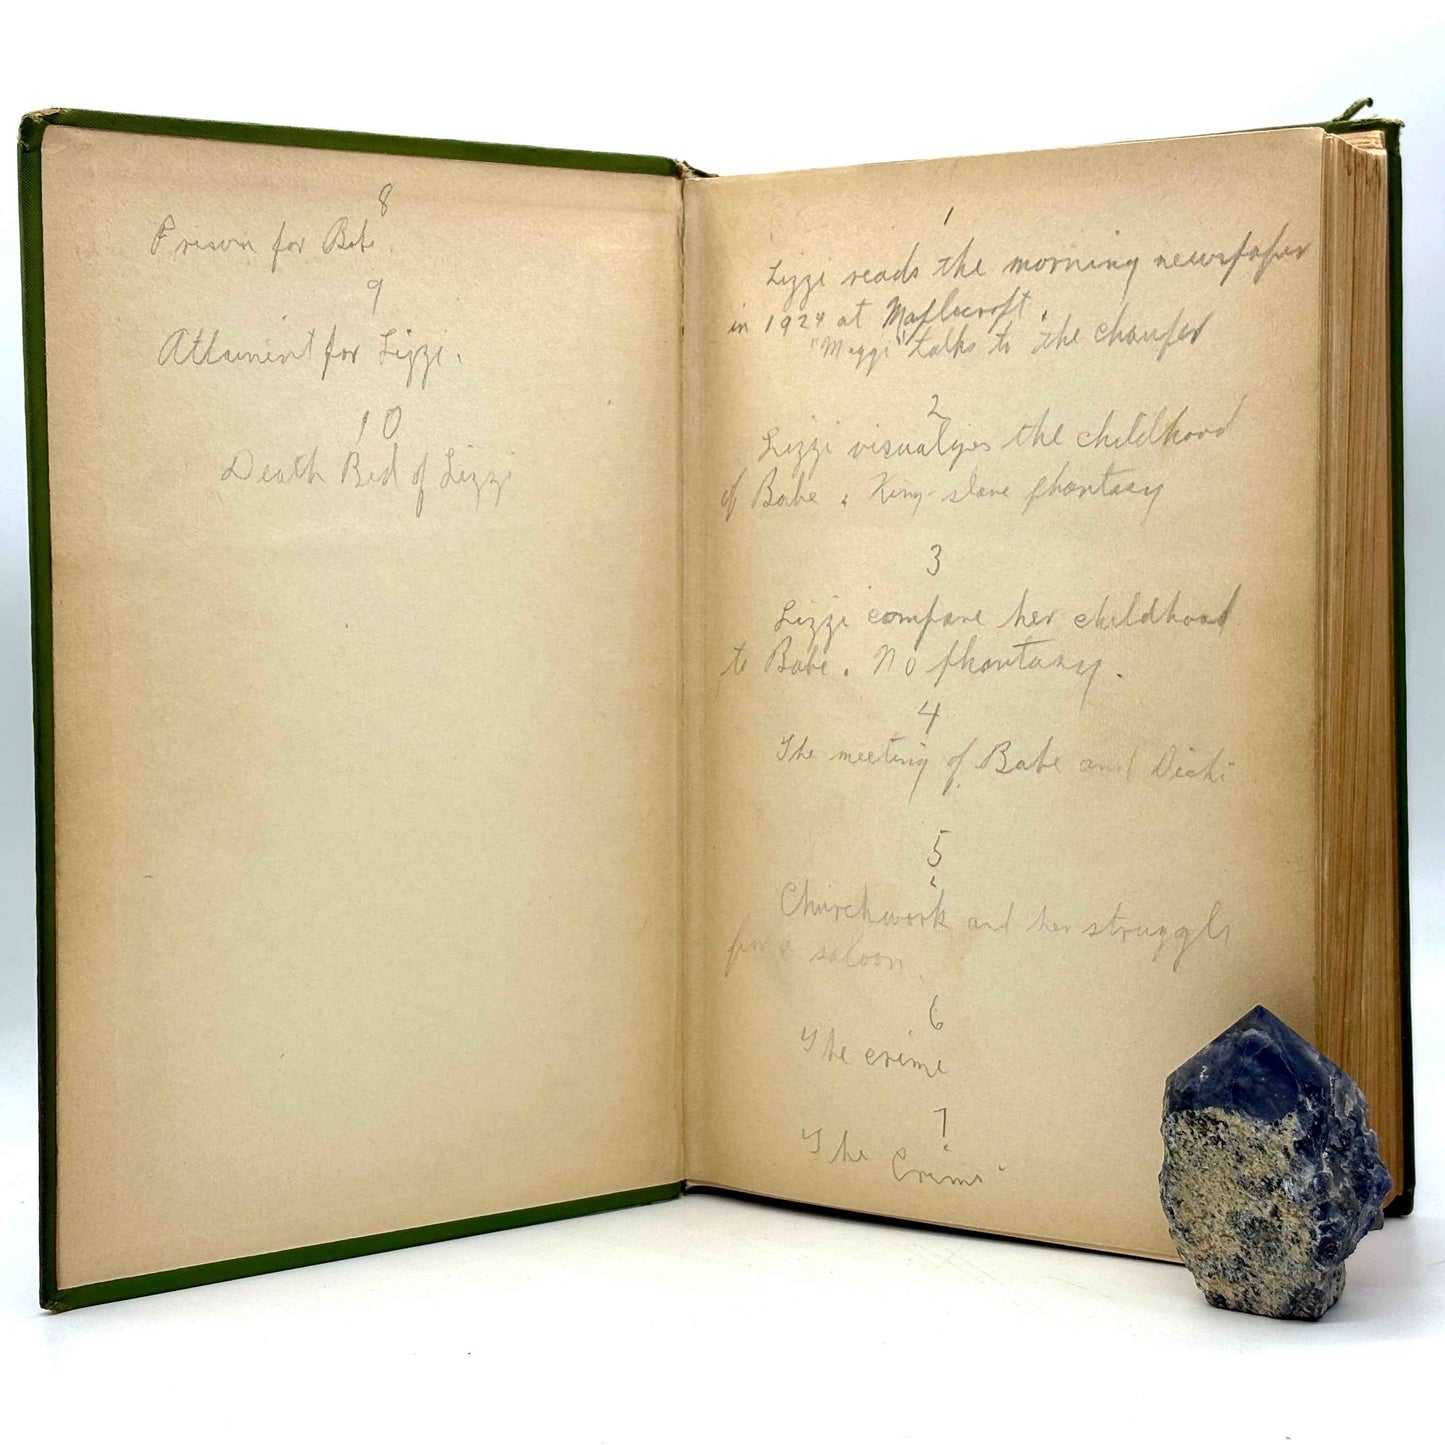 8
Prison for Babe.
9
Attainment for Lizzi.
10
Death Bed of Lizzi
1
Lizzi reads the morning newspaper
in 1924 at Maplecroft.
"Maggi" talks to the chaufer
2
Lizzi visualizes the childhood
of Babe. King-slave phantasy
3
Lizzi compare her childhood
to Babe. No phantasy.
4
The meeting of Babe and Dicki
5
Churchwork and her struggle
for a saloon.
6
The crime
7
The Crime